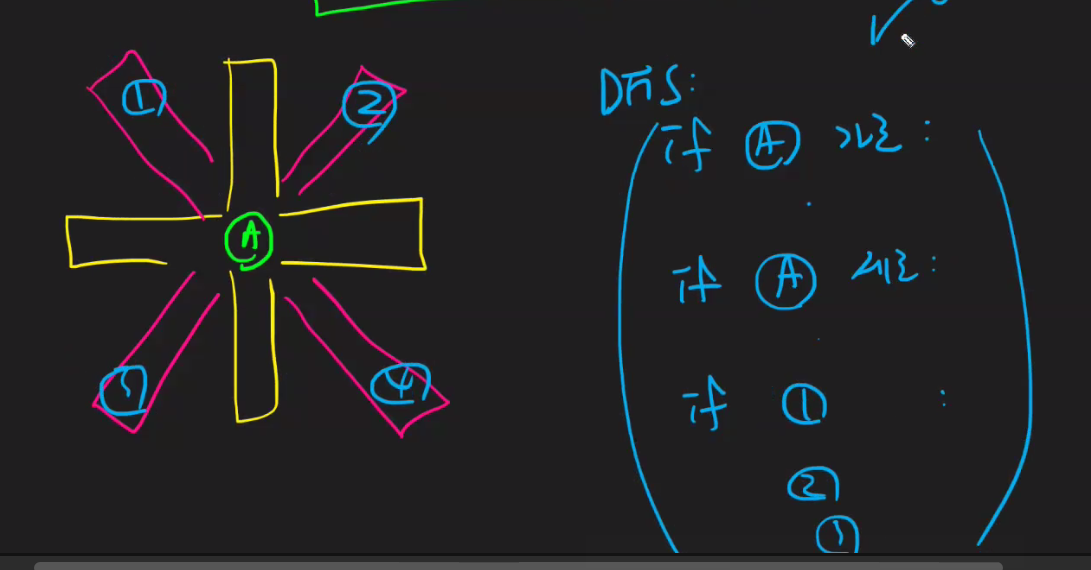 ① ②
A
③ ④
DFS:
if Ⓐ 가로 :
if Ⓐ 세로 :
if ① :
②
③